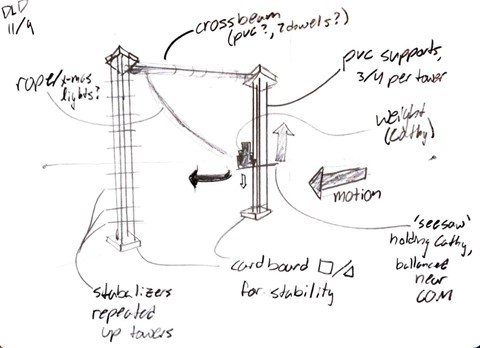 DLD
11/9
crossbeam
(pvc?, ?dowels?)
rope/x-mas
lights?
pvc supports,
3/4 per tower
weight
(Cathy)
motion
'seesaw'
holding Cathy,
ballanced
near
COM
cardboard □/△
for stability
stabalizers
repeated
up towers